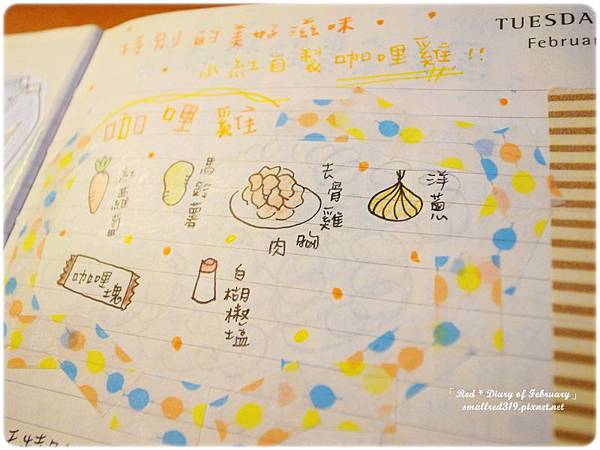 特別的美好滋味
小紅自製咖哩雞!!
TUESDA
Februar
咖哩雞
紅蘿蔔
馬鈴薯
去骨雞胸肉
洋蔥
咖哩塊
白胡椒塩
「Red * Diary of February」
smallred319.pixnet.net